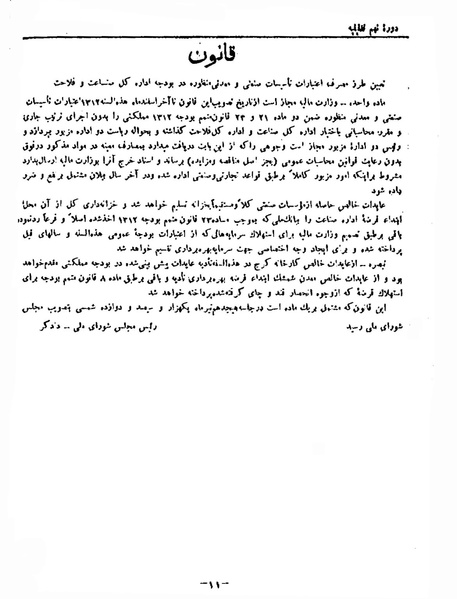 دورهٔ نهم تقنینیه
قانون
تعیین طرز مصرف اعتبارات تأسیسات صنعتی و معدنی منظوره در بودجه اداره کل صناعت و فلاحت
ماده واحده ـ وزارت مالیه مجاز است از تاریخ تصویب این قانون تا آخر اسفندماه هذه السنه ۱۳۱۲ اعتبارات تأسیسات
صنعتی و معدنی منظوره ضمن دو ماده ۲۱ و ۲۳ قانون متمم بودجه ۱۳۱۲ مملکتی را بدون اجرای ترتیب جاری
و مقرر محاسباتی باختیار اداره کل صناعت و اداره کل فلاحت گذاشته و بحواله ریاست دو اداره مزبور بپردازد و
رئیس دو ادارهٔ مزبور مجاز است وجوهی را که از این بابت دریافت میدارد بمصارف معینه در مواد مذکور در فوق
بدون رعایت قوانین محاسبات عمومی (بجز اصل مناقصه و مزایده) برساند و اسناد خرج آنرا بوزارت مالیه ارسال دارد
مشروط بر اینکه امور مزبور کاملاً بر طبق قواعد تجارتی و صنعتی اداره شده و در آخر سال بیلان مشتمل بر نفع و ضرر
داده شود
عایدات خالص حاصله از مؤسسات صنعتی کلاً و مستقیماً بخزانه تسلیم خواهد شد و خزانه‌داری کل از آن محل
ابتداء قرضهٔ اداره صناعت را ببانک ملی که بموجب ماده ۲۳ قانون متمم بودجه ۱۳۱۲ اخذ شده اصلاً و فرعاً رد نموده
باقی بر طبق تصمیم وزارت مالیه برای استهلاک سرمایه‌هائی که از اعتبارات بودجهٔ عمومی هذه السنه و سالهای قبل
پرداخته شده و برای ایجاد وجه اختصاصی جهت سرمایه بهره‌برداری تقسیم خواهد شد
تبصره ـ از عایدات خالص کارخانه کرج در هذه السنه تأدیه عایدات پیش بینی شده در بودجه مملکتی مقدم خواهد
بود و از عایدات خالص معدن شمشک ابتداء قرضه بهره‌برداری تأدیه و باقی بر طبق ماده ۸ قانون متمم بودجه برای
استهلاک قرضهٔ که از وجوه انحصار قند و چای گرفته شده پرداخته خواهد شد
این قانون که مشتمل بر یک ماده است در جلسه هیجدهم تیر ماه یکهزار و سیصد و دوازده شمسی بتصویب مجلس
شورای ملی رسید
رئیس مجلس شورای ملی ـ دادگر
-۱۱-